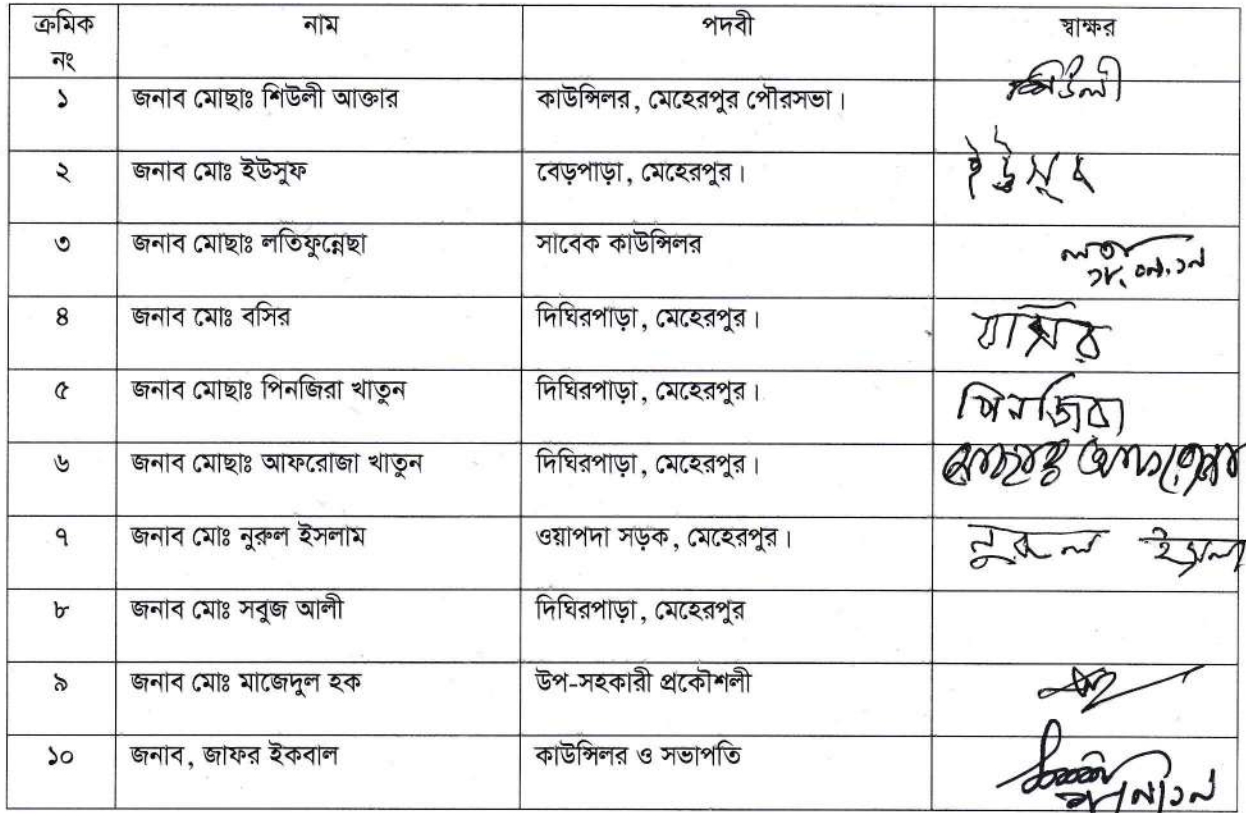 ক্রমিক নং | নাম | পদবী | স্বাক্ষর
১ | জনাব মোছাঃ শিউলী আক্তার | কাউন্সিলর, মেহেরপুর পৌরসভা। | শিউলী
২ | জনাব মোঃ ইউসুফ | বেড়পাড়া, মেহেরপুর। | ইউসুব
৩ | জনাব মোছাঃ লতিফুন্নেছা | সাবেক কাউন্সিলর |
৪ | জনাব মোঃ বসির | দিঘিরপাড়া, মেহেরপুর। | বাসির
৫ | জনাব মোছাঃ পিনজিরা খাতুন | দিঘিরপাড়া, মেহেরপুর। | পিনজিরা
৬ | জনাব মোছাঃ আফরোজা খাতুন | দিঘিরপাড়া, মেহেরপুর। | মোছাঃ আফরোজা
৭ | জনাব মোঃ নুরুল ইসলাম | ওয়াপদা সড়ক, মেহেরপুর। | নুরুল ইসলা
৮ | জনাব মোঃ সবুজ আলী | দিঘিরপাড়া, মেহেরপুর |
৯ | জনাব মোঃ মাজেদুল হক | উপ-সহকারী প্রকৌশলী |
১০ | জনাব, জাফর ইকবাল | কাউন্সিলর ও সভাপতি |